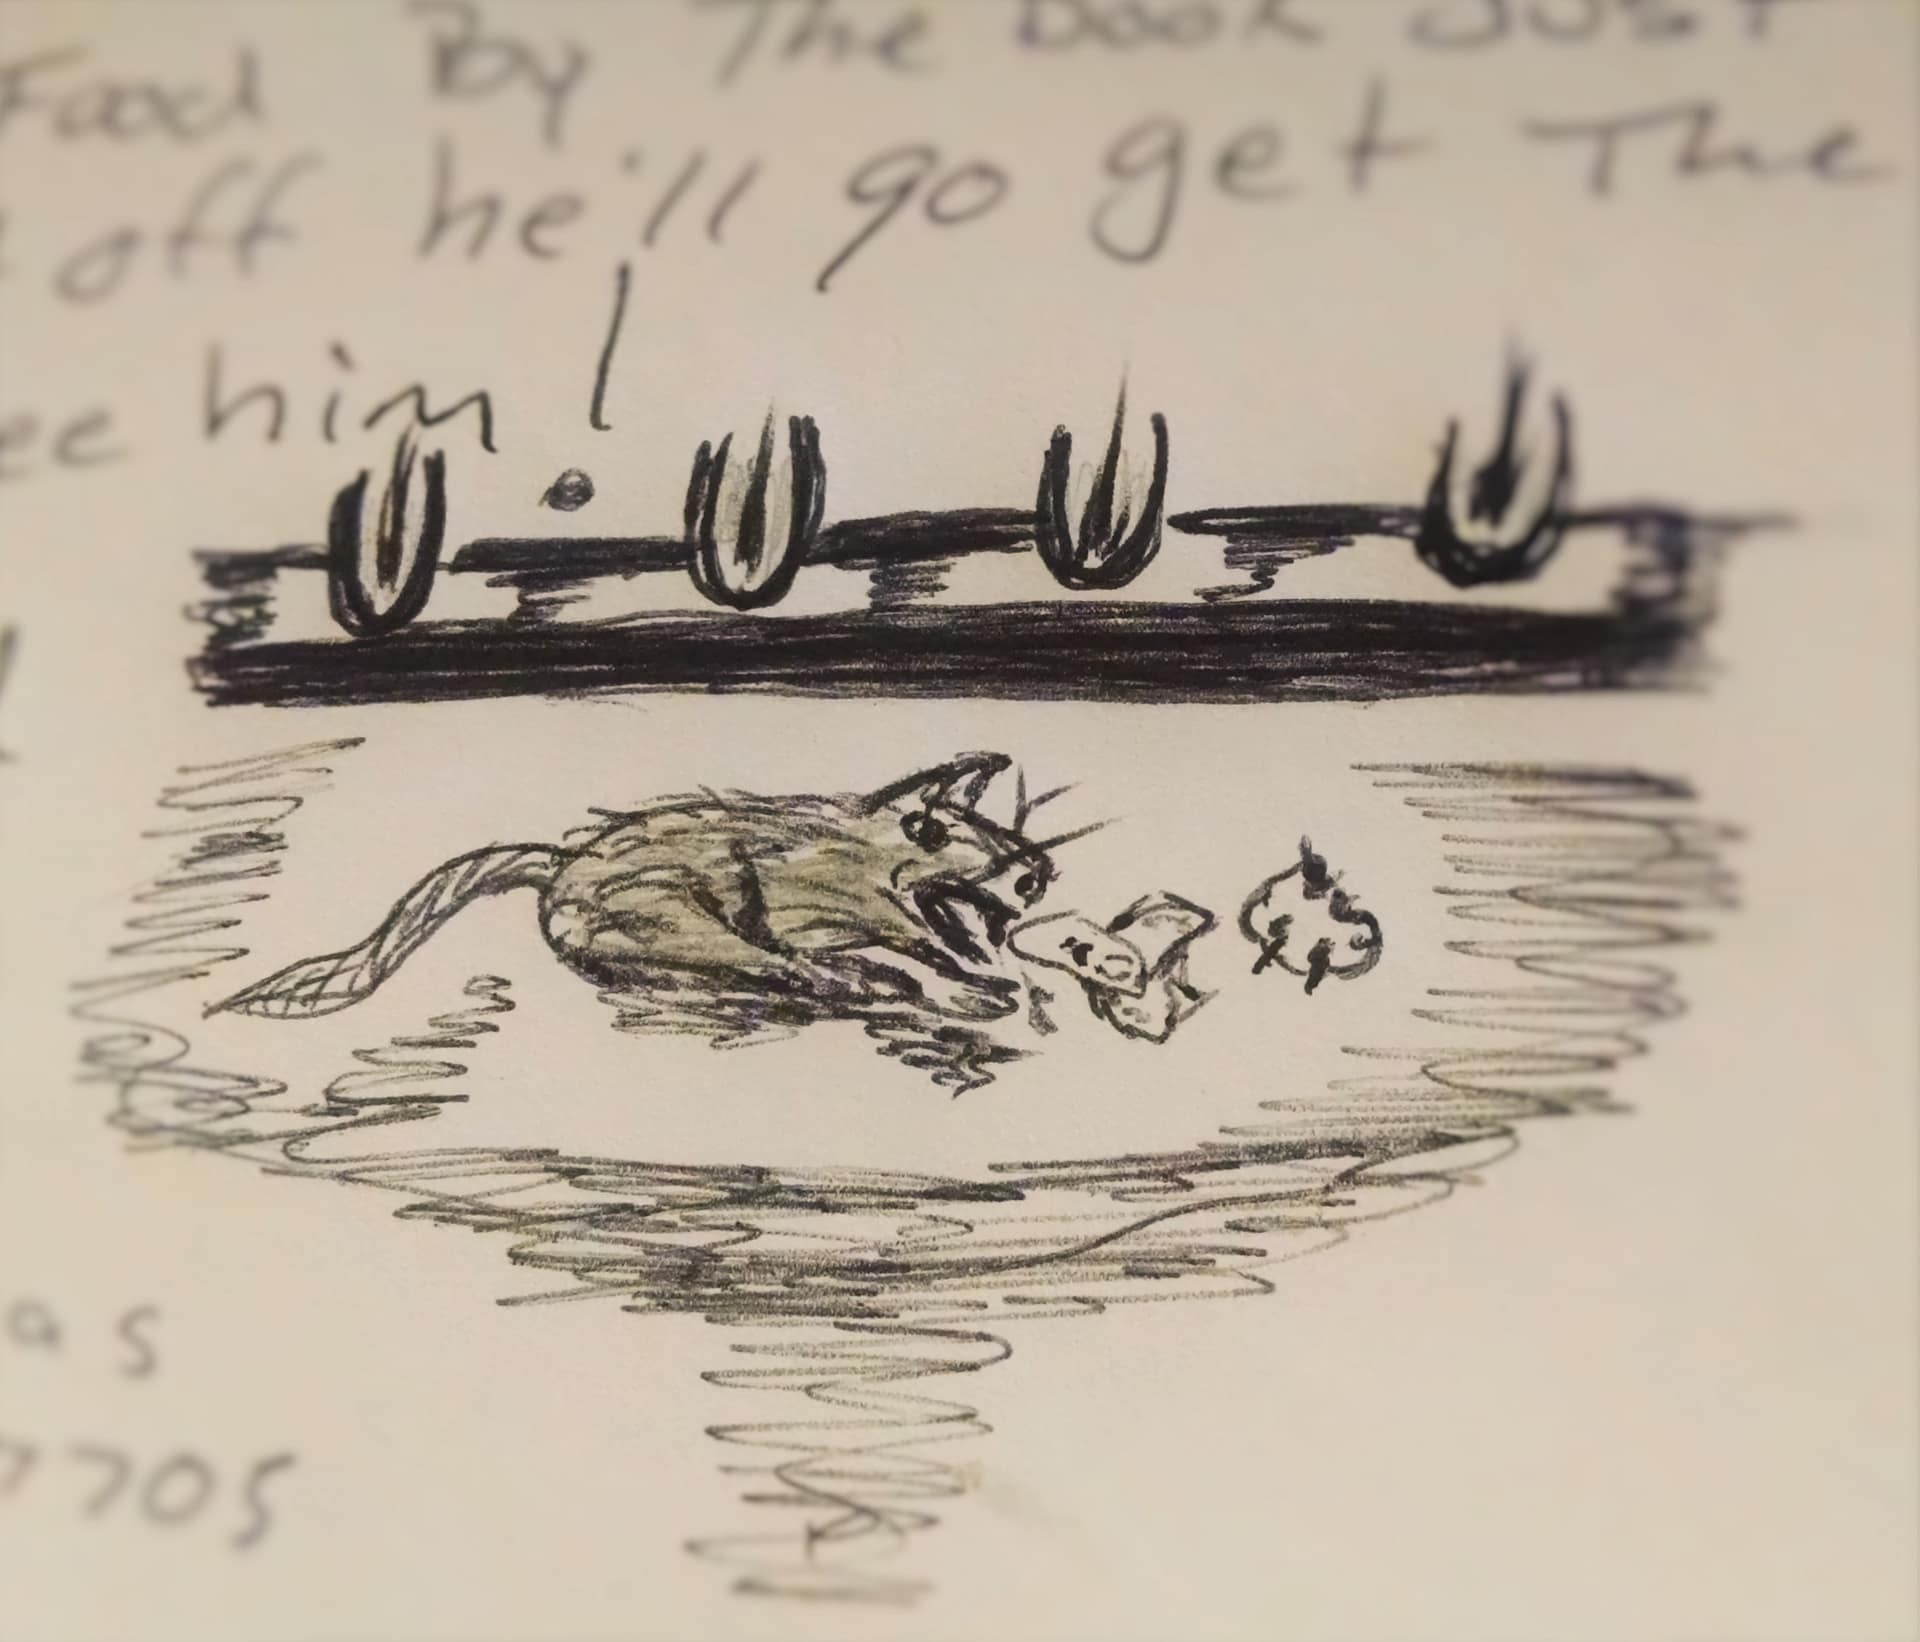 Food By The Door Just
off he'll go get The
him!
as